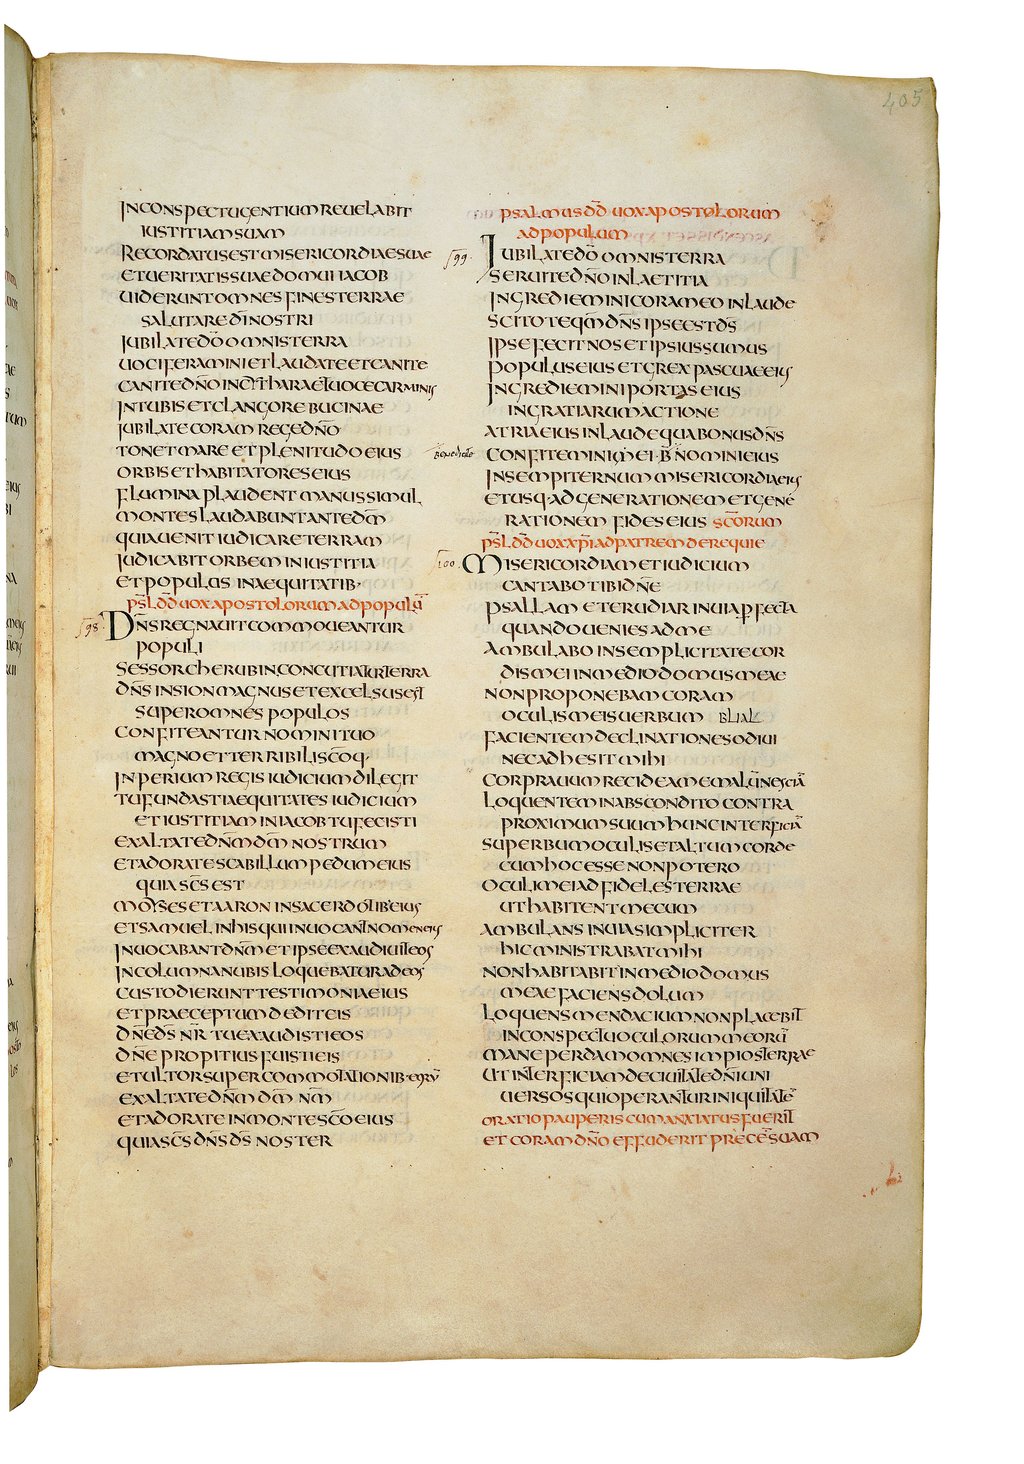 405
INCONSPECTUGENTIUMREUELABIT
IUSTITIAMSUAM
RECORDATUSESTMISERICORDIAESUAE
ETUERITATISSUAEDOMUIIACOB
UIDERUNTOMNESFINESTERRAE
SALUTAREDĪNOSTRI
IUBILATEDŌOMNISTERRA
UOCIFERAMINIETLAUDATEETCANITE
CANITEDN̄OINCITHARAETUOCECARMINIS
INTUBISETCLANGOREBUCINAE
IUBILATECORAMREGEDN̄O
TONETMAREETPLENITUDOEIUS
ORBISETHABITATORESEIUS
FLUMINAPLAUDENTMANUSSIMUL
MONTESLAUDABUNTANTEDM̄
QUIAUENITIUDICARETERRAM
IUDICABITORBEMINIUSTITIA
ETPOPULOS INAEQUITATIB·
PSL̄DD̄UOXAPOSTOLORUMADPOPULŪ
ps 98
DN̄SREGNAUITCOMMOUEANTUR
POPULI
SESSORCHERUBINCONCUTIATURTERRA
DN̄S INSIONMAGNUSETEXCELSUSEST
SUPEROMNES POPULOS
CONFITEANTURNOMINITUO
MAGNOETTERRIBILISCŌQ·
INPERIUMREGISIUDICIUMDILEGIT
TUFUNDASTIAEQUITATES IUDICIUM
ETIUSTITIAMINIACOBTUFECISTI
EXALTATEDN̄MDM̄ NOSTRUM
ETADORATESCABILLUMPEDUMEIUS
QUIASC̄SEST
MOYSESETAARONINSACERDOTIB·EIUS
ETSAMUELINHISQUIINUOCANTNOMENEIUS
INUOCABANTDN̄METIPSEEXAUDIUITEOS
INCOLUMNANUBISLOQUEBATURADEOS
CUSTODIERUNTTESTIMONIAEIUS
ETPRAECEPTUMDEDITEIS
DN̄EDS̄ NR̄ TUEXAUDISTIEOS
DN̄EPROPITIUSFUISTIEIS
ETULTORSUPERCOMMOTATIONIB·EORŪ
EXALTATEDN̄MDM̄ NM̄
ETADORATEINMONTESCŌEIUS
QUIASC̄SDN̄SDS̄ NOSTER
PSALMUSDD̄UOXAPOSTOLORUM
ADPOPULUM
ps 99·
IUBILATEDŌOMNISTERRA
SERUITEDN̄OINLAETITIA
INGREDIEMINICORAMEOINLAUDE
SCITOTEQM̄DN̄SIPSEESTDS̄
IPSEFECITNOSETIPSIUSSUMUS
POPULUSEIUSETGREXPASCUAEEIUS
INGREDIEMINIPORTASEIUS
INGRATIARUMACTIONE
ATRIAEIUSINLAUDEQUIABONUSDN̄S
CONFITEMINIMEI·BN̄NOMINIEIUS
INSEMPITERNUMMISERICORDIAEIUS
ETUSQ·ADGENERATIONEMETGENE
RATIONEM FIDESEIUS SCŌRUM
PSL̄DD̄UOXXPĪADPATREMDEREQUIE
100·
MISERICORDIAMETIUDICIUM
CANTABOTIBIDN̄E
PSALLAMETERUDIARINUIAPFECTA
QUANDOUENIESADME
AMBULABOINSEMPLICITATECOR
DISMEIINMEDIODOMUSMEAE
NONPROPONEBAMCORAM
OCULISMEISUERBUM BLIAL
FACIENTEMDECLINATIONESODIUI
NECADHESITMIHI
CORPRAUUMRECIDEAMEMALŪNESCIĀ
LOQUENTEMINABSCONDITOCONTRA
PROXIMUMSUUMHUNCINTERFICIĀ
SUPERBUMOCULISETALTUMCORDE
CUMHOCESSENONPOTERO
OCULIMEIADFIDELESTERRAE
UTHABITENTMECUM
AMBULANSINUIASIMPLICITER
HICMINISTRABATMIHI
NONHABITABITINMEDIODOMUS
MEAEFACIENSDOLUM
LOQUENSMENDACIUMNONPLACEBIT
INCONSPECTUOCULORUMMEORŪ
MANEPERDAMOMNESIMPIOSTERRAE
UTINTERFICIAMDECIUITATEDN̄IUNI
UERSOSQUIOPERANTURINIQUITATĒ
ORATIOPAUPERISCUMANXIATUSFUERIT
ETCORAMDN̄OEFFUDERITPRECĒSUAM